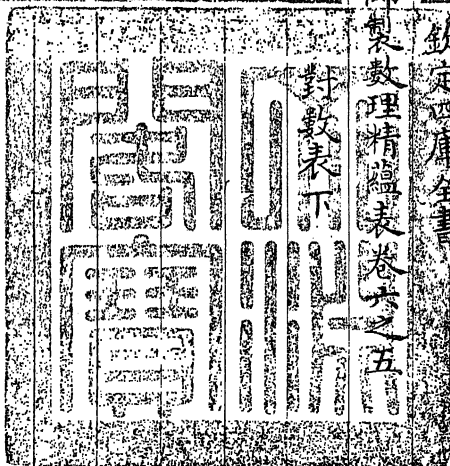 欽定四庫全書
御製數理精蘊表卷六之五
對數表下